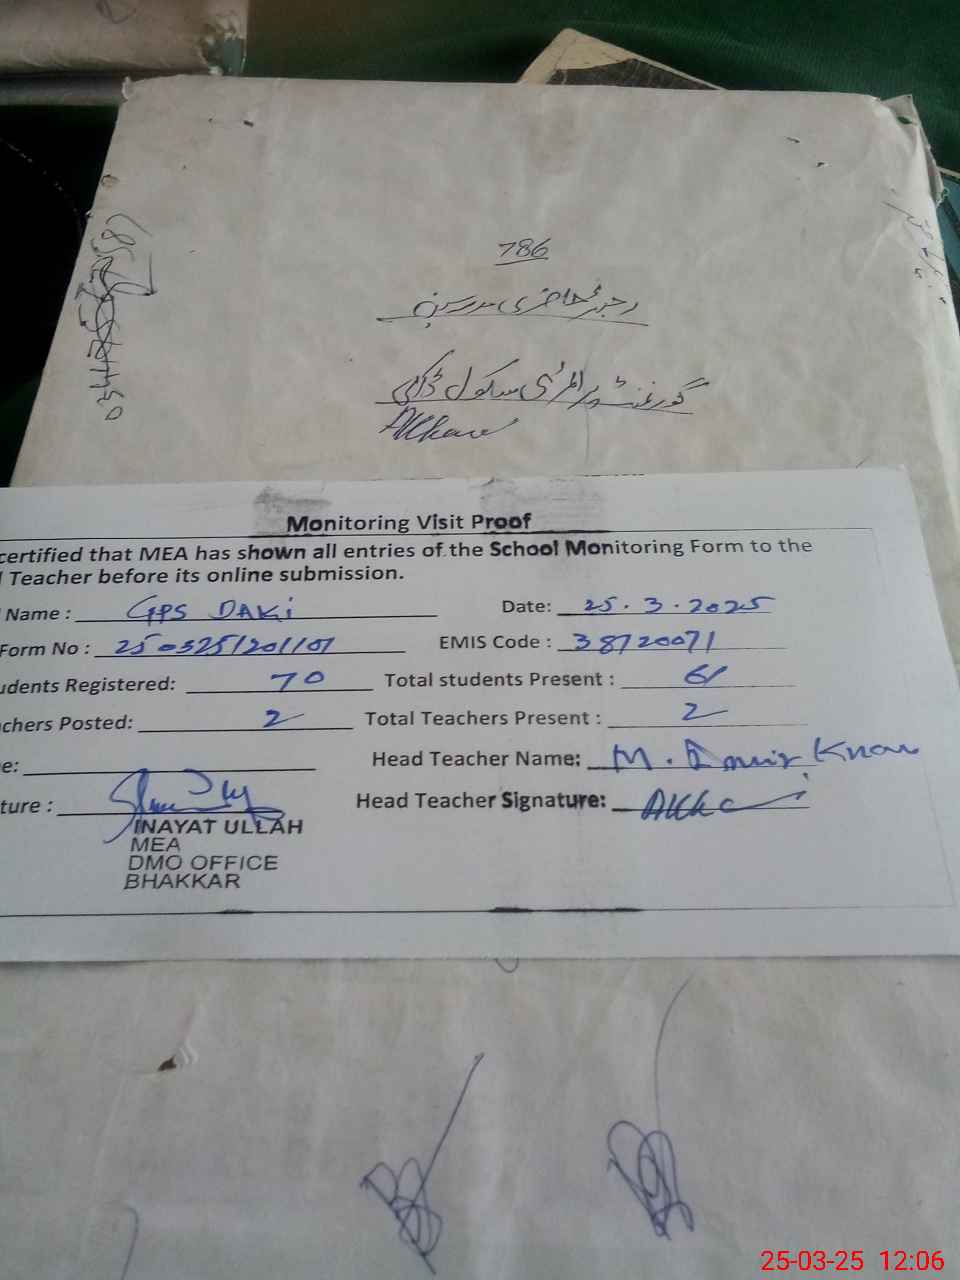 786
رجسٹر حاضری مدرسین
گورنمنٹ پرائمری سکول ڈاکی
AKhan
Monitoring Visit Proof
certified that MEA has shown all entries of the School Monitoring Form to the
Teacher before its online submission.
Name : GPS DAKi Date: 25.3.2025
Form No : EMIS Code : 38720071
udents Registered: 70 Total students Present : 61
chers Posted: 2 Total Teachers Present : 2
e: Head Teacher Name: M. Amir Khan
ture : Head Teacher Signature: AKhan
INAYAT ULLAH
MEA
DMO OFFICE
BHAKKAR
25-03-25 12:06